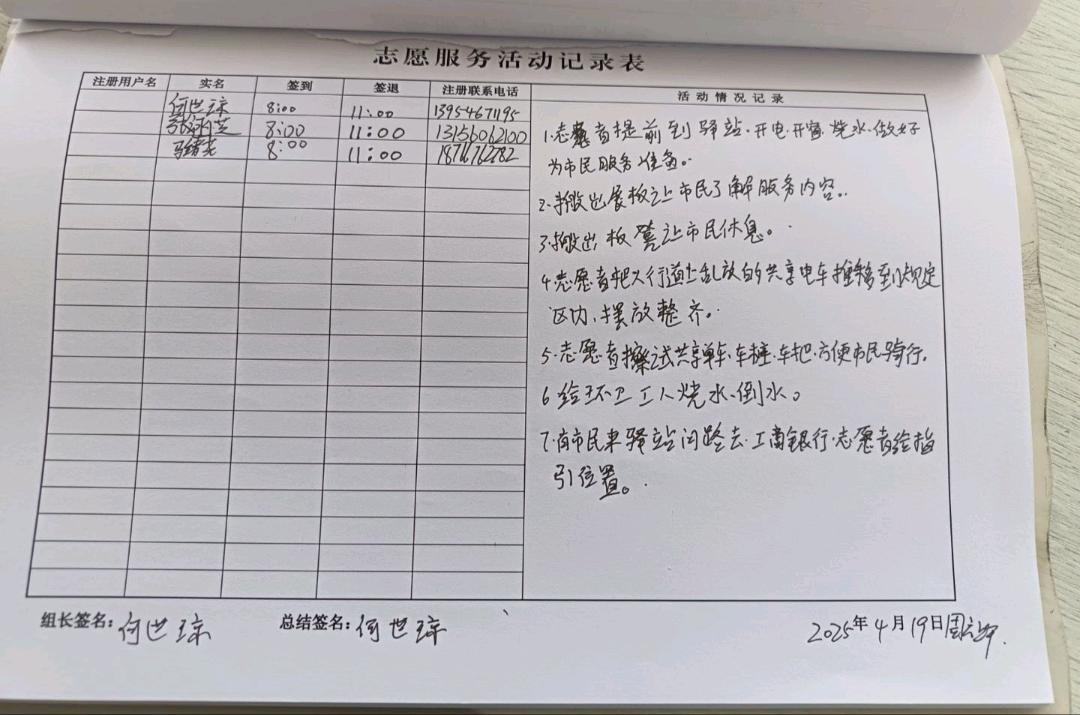 志愿服务活动记录表
注册用户名 实名 签到 签退 注册联系电话 活动情况记录
何世琼 8:00 11:00 13954671195
8:00 11:00 13156062100
8:00 11:00
1.志愿者提前到驿站.开电.开窗.烧水.做好
为市民服务准备。
2.搬出展板让市民了解服务内容.
3.搬出板凳让市民休息。
4.志愿者把人行道上乱放的共享电车推移到规定
区内、摆放整齐。
5.志愿者擦试共享单车.车座.车把.方便市民骑行.
6 给环卫工人烧水、倒水。
7.有市民来驿站问路去.工商银行.志愿者给指
引位置。
组长签名:何世琼 总结签名:何世琼 2025年4月19日周六